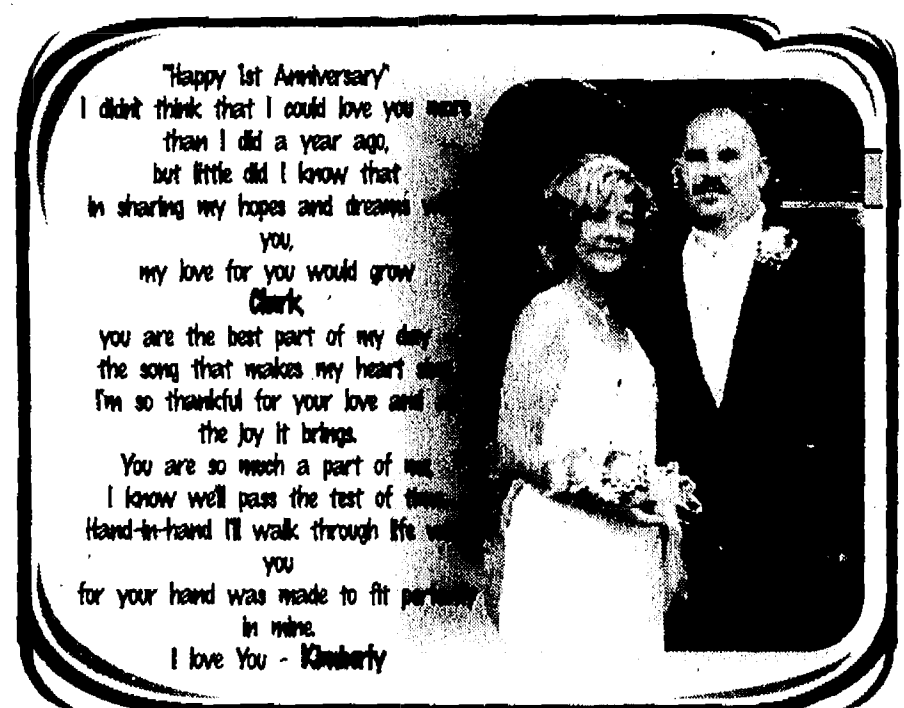 "Happy 1st Anniversary"
I didn't think that I could love you more
than I did a year ago,
but little did I know that
in sharing my hopes and dreams
you,
my love for you would grow
Clark,
you are the best part of my day
the song that makes my heart
I'm so thankful for your love and
the joy it brings.
You are so much a part of me,
I know we'll pass the test of time.
Hand-in-hand I'll walk through life
you
for your hand was made to fit perfectly
in mine.
I love You - Kimberly